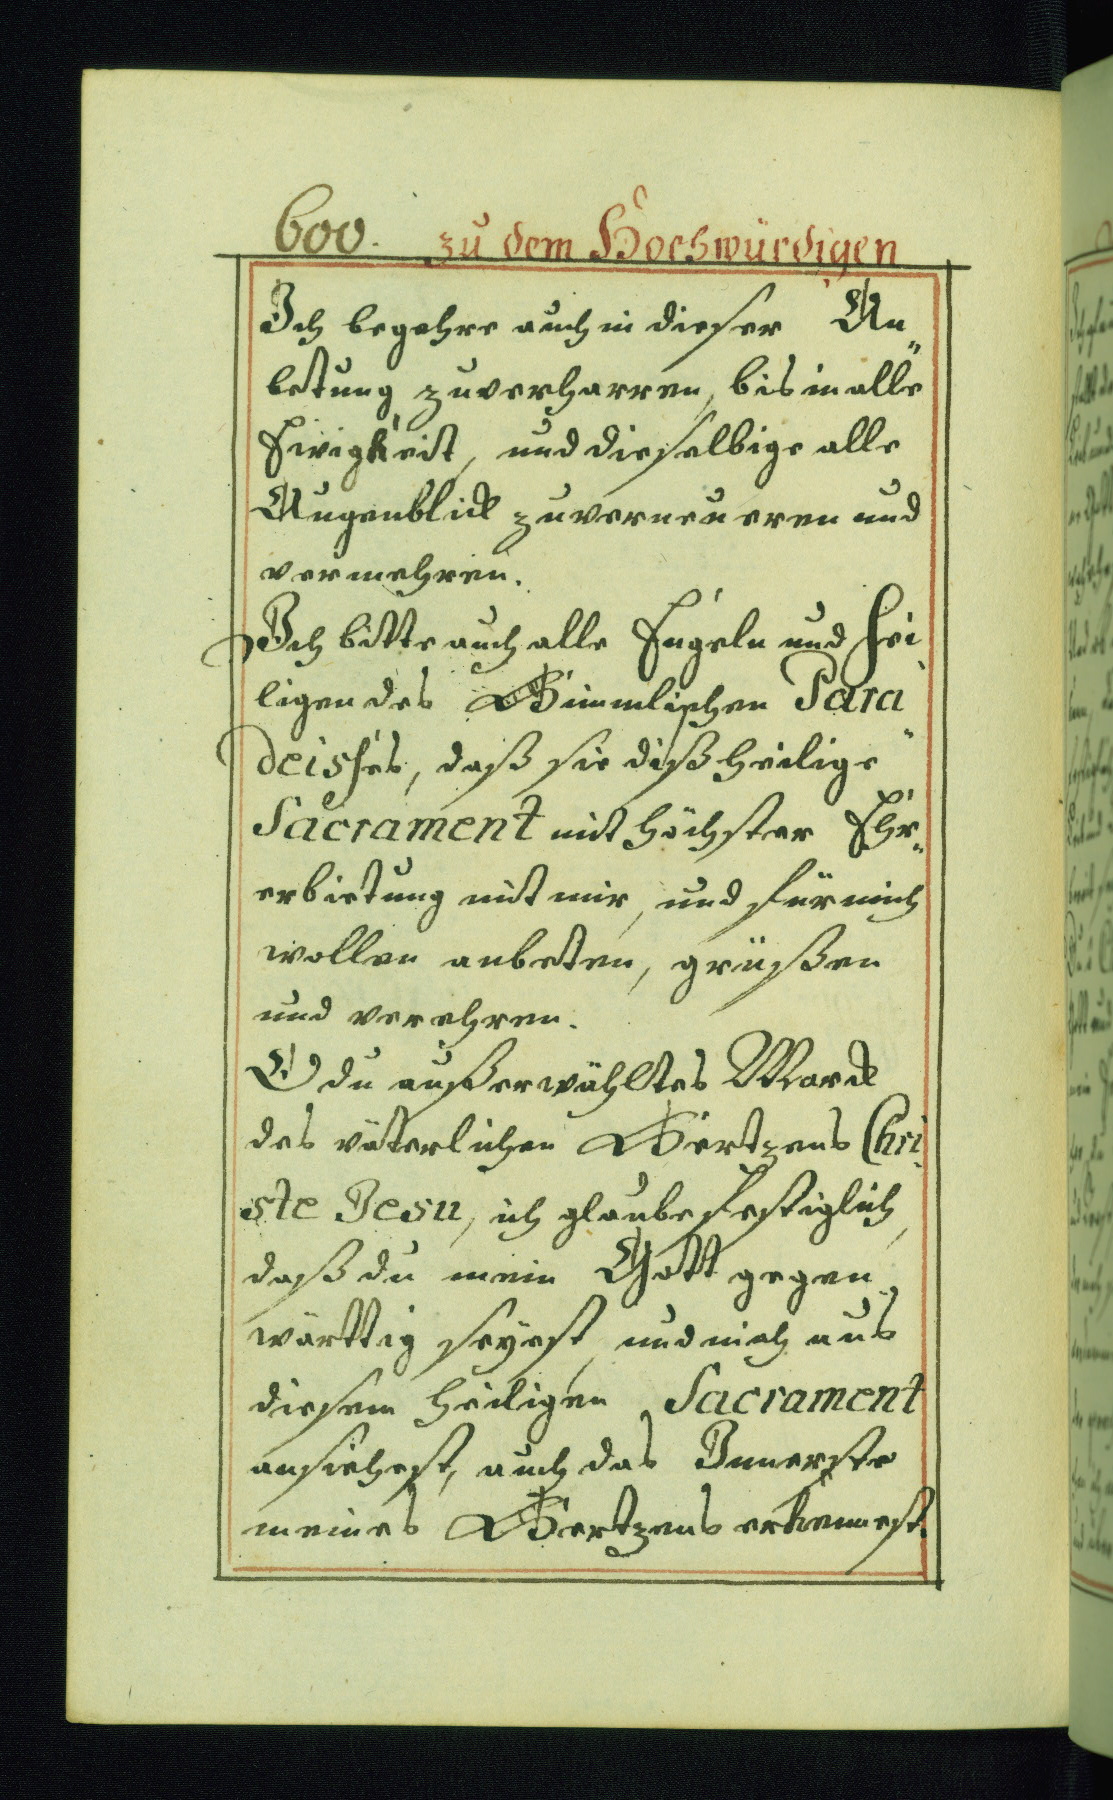 600. zu dem Hochwürdigen
Ich begehre auch in dieser An„
betung zuverharren, bis in alle
Ewigkeit, und dieselbige alle
Augenblick zuverneueren und
vermehren.
Ich bitte auch alle Engeln und Hei„
ligen des Himmlischen Para„
deises, daß sie diß heilige
Sacrament mit höchster Ehr„
erbietung mit mir, und für mich
wollen anbeten, grüßen
und verehren.
O du außerwähltes Marck
des väterlichen Hertzens Chri„
ste Jesu, ich glaube festiglich,
daß du mein Gott gegen„
wärttig seyest, und mich aus
diesem heiligen Sacrament
ansiehest, auch das Innerste
meines Hertzens erkennest.